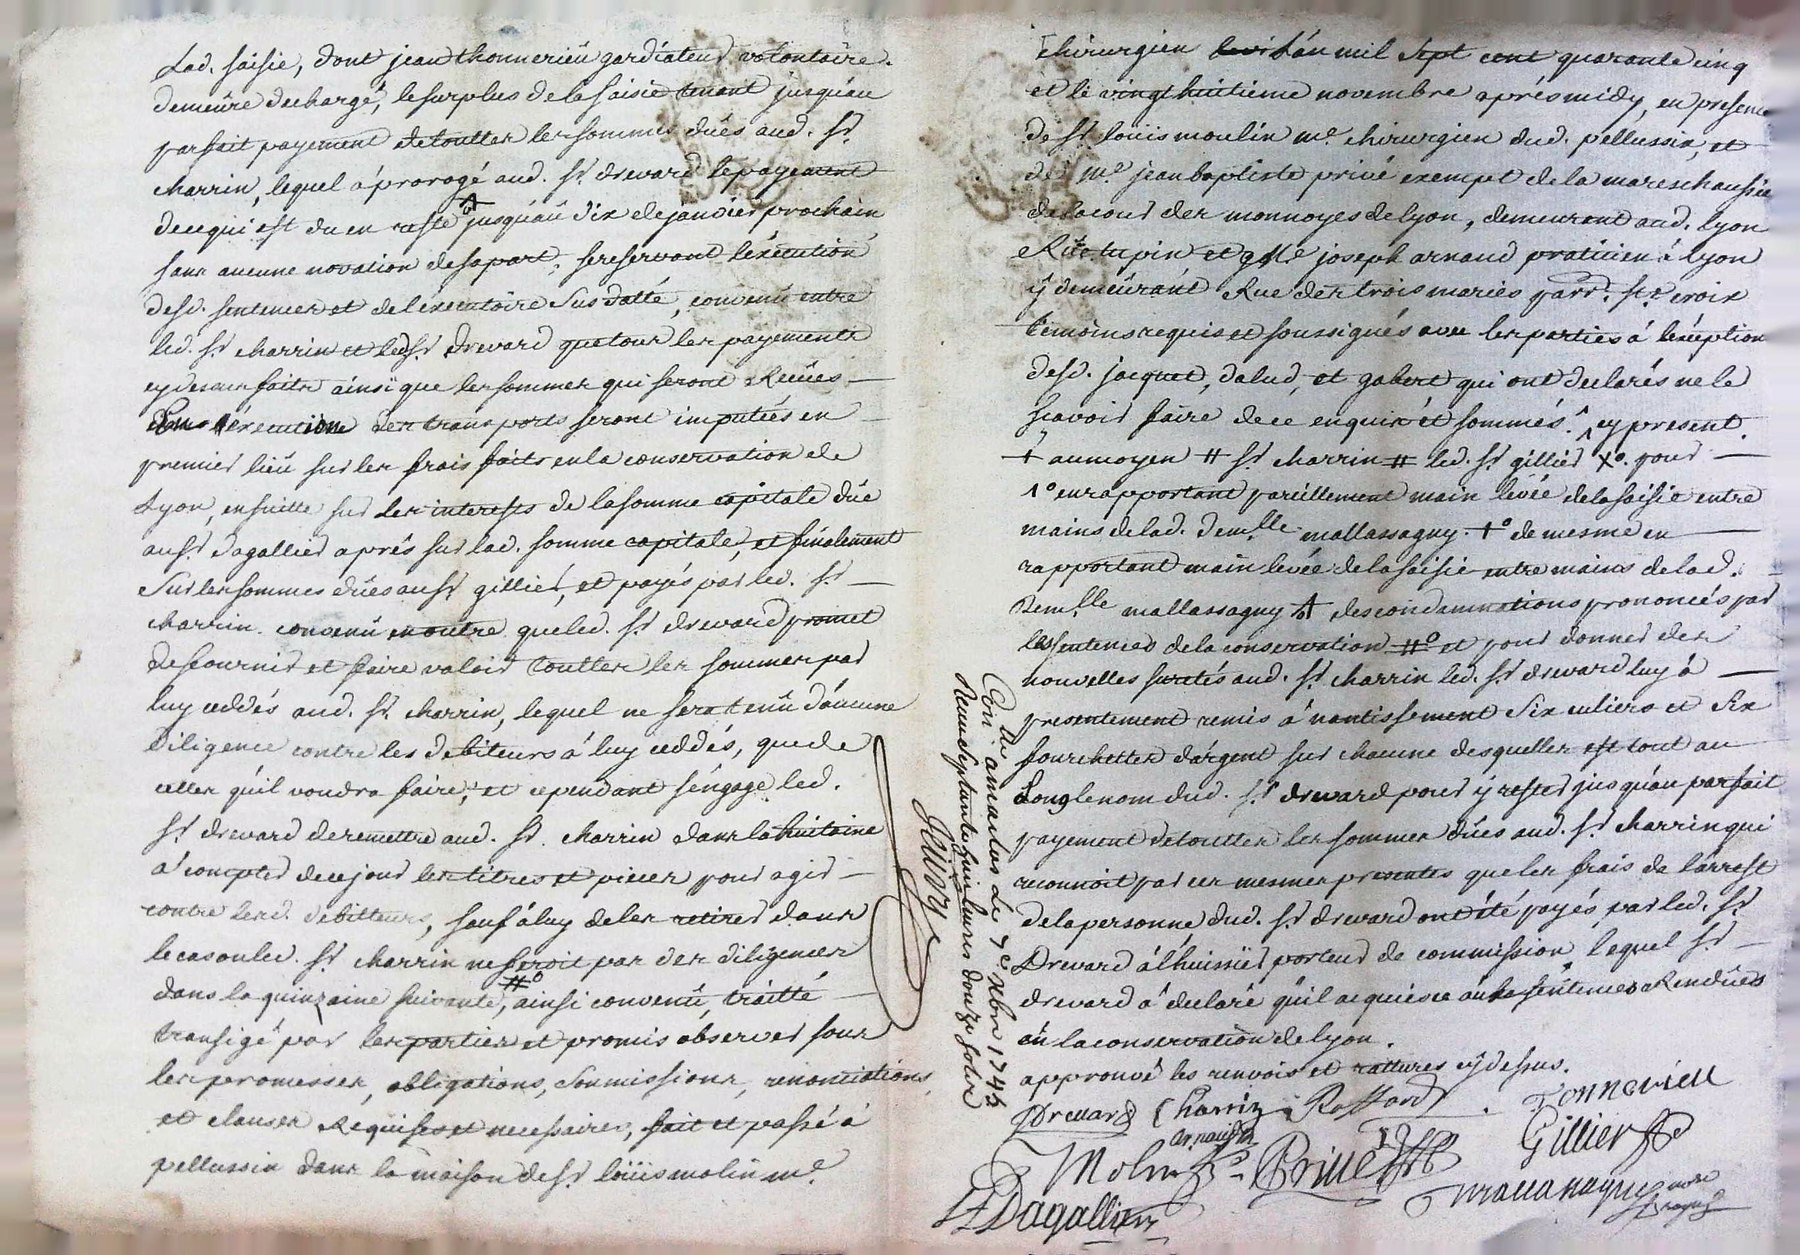 Lad. saisie, dont jean thonnerieu gardiateur volontaire
demeure dechargé, le surplus de la saisie tenant jusqu'au
parfait payement de touttes les sommes dües aud. sr.
charrin, lequel a prorogé aud. sr. dreward le payement
de ce qui est du en reste jusqu'au dix de janvier prochain
sans aucune novation de sa part, se reservant l'execution
desd. sentences et de l'executoire susdatté, convenu entre
led. sr. charrin et led. sr. dreward que tous les payements
cy dessus faits ainsi que les sommes qui seront Recües
En execution des transports seront imputées en
premier lieu sur les frais faits en la conservation de
Lyon, ensuitte sur les interests de la somme capitale düe
au sr. dagallier aprés sur lad. somme capitale, et finalement
Sur les sommes dües au sr. gillier, et payés par led. sr.
charrin. convenu en outre que led. sr. dreward promet
de fournir et faire valoir touttes les sommes par
luy ceddés aud. sr. charrin, lequel ne sera tenu d'aucune
diligence contre les debiteurs à luy ceddés, que de
celles qu'il voudra faire, et cependant s'engage led.
sr. dreward de remettre aud. sr. charrin dans la huitaine
a compter de ce jour les titres et pieces pour agir
contre lesd. debitteurs, sauf à luy de les retirer dans
le cas ou led. sr. charrin ne feroit pas des diligences
dans la quinzaine suivante, #° ainsi convenu, traitté
transigé par les parties et promis observer sous
les promesses, obligations, soumissions, renonciations
et clauses Requises et necessaires, fait et passé à
pellussin dans la maison de sr. loüis molin me.
Chirurgien l'an mil sept cent quarante cinq
et le vingt huitieme novembre aprés midy, en presence
de sr. loüis moulin me. chirurgien dud. pellussin, et
de me. jean baptiste privé exempt de la mareschaussée
de la cour des monnoyes de lyon, demeurant aud. lyon
Rüe tupin et joseph arnaud praticien à lyon
ÿ demeurant Rue des trois maries parr. ste croix
temoins requis et soussignés avec les parties à l'exception
desd. jacquet, dalud, et gabert qui ont declarés ne le
scavoir faire de ce enquis et sommés. cy present.
+ au moyen # sr. charrin # led. sr. gillier X° pour
1° en rapportant pareillement main levée de la saisie entre
mains de lad. demlle. mallassagny. +° de mesme en
rapportant main levée de la saisie entre mains de lad.
Demlle mallassagny des condamnations prononcés par
les sentences de la conservation #° et pour donner des
nouvelles suretés aud. sr. charrin led. sr. dreward luy à
presentement remis a nantissement six culiers et six
fourchettes d'argent sur chacune desquelles est tout au
Long le nom dud. sr. dreward pour y rester jusqu'au parfait
payement de touttes les sommes dües aud. sr. charrin qui
reconnoit par ces mesmes presentes que les frais de l'arrest
de la personne dud. sr. dreward ont été payés par led. sr.
Dreward à l'huissier porteur de commission, lequel sr.
dreward a declaré qu'il acquiesce aux sentences Rendües
en la conservation de lyon.
approuvé les renvois et rattures cy dessus.
Dreward Charrin Roffard Tonnerieu
arnaud
Molin Privé Gillier
Dagallier
Con. lle. a
Le 7e Xbre 1745
Receu Septante livres douze sols